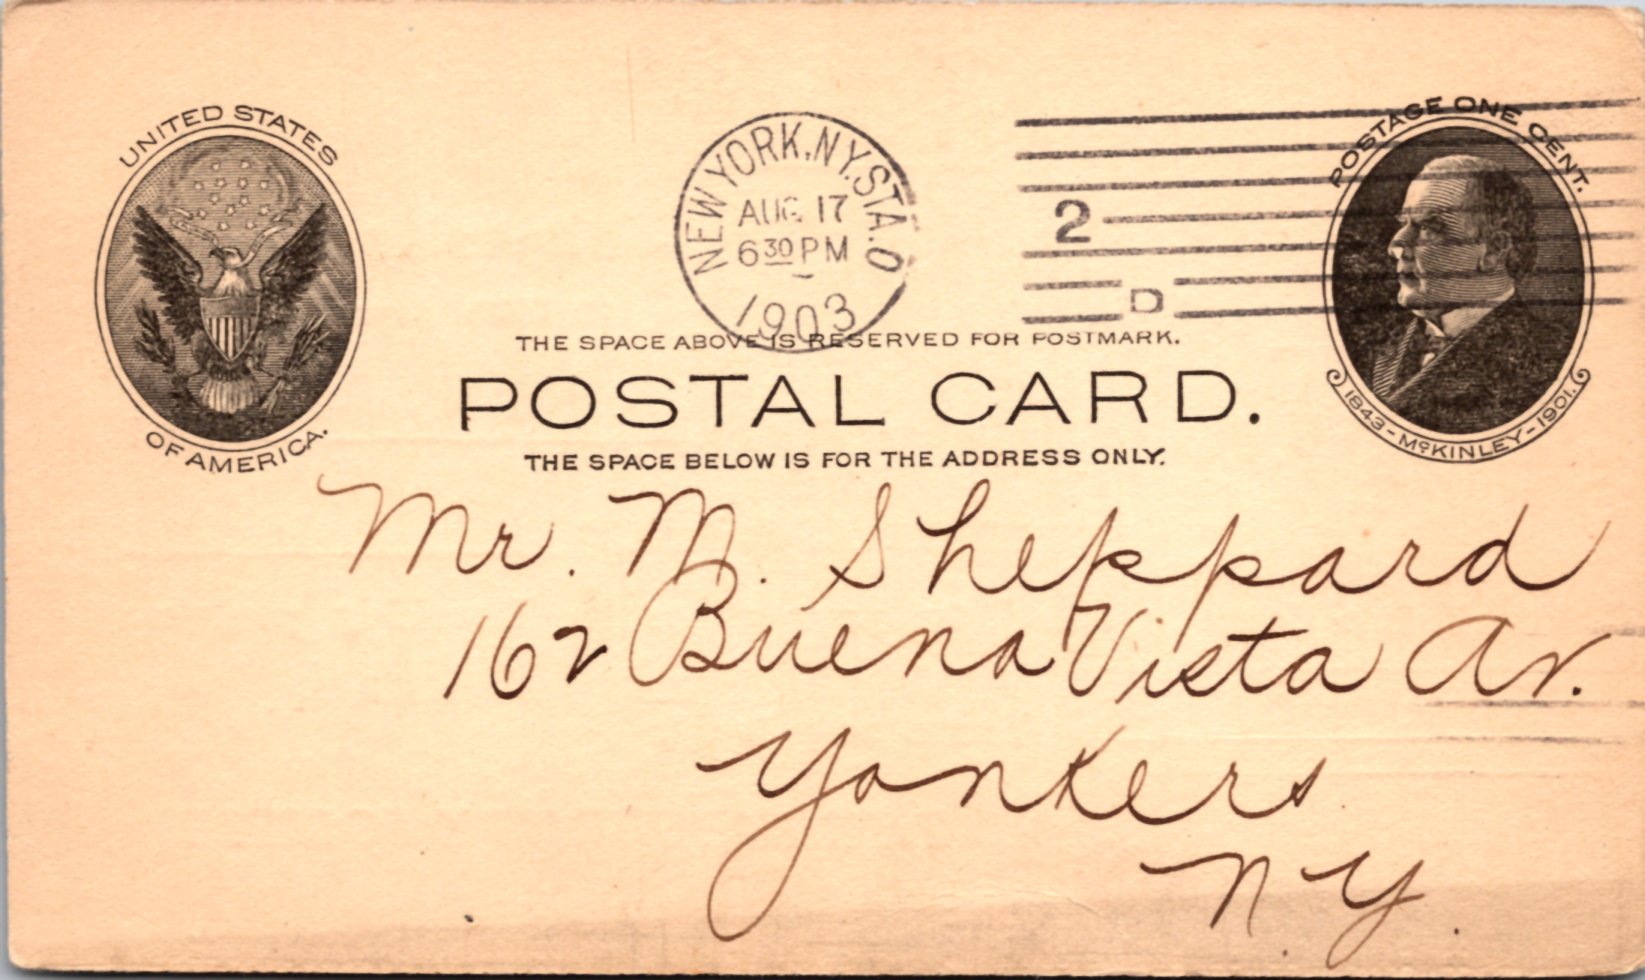 UNITED STATES
OF AMERICA.
NEW YORK, N.Y. STA. O
AUG 17
6 30 PM
1903
2
D
POSTAGE ONE CENT.
1843 - McKINLEY - 1901.
THE SPACE ABOVE IS RESERVED FOR POSTMARK.
POSTAL CARD.
THE SPACE BELOW IS FOR THE ADDRESS ONLY.
Mr. M. Sheppard
162 Buena Vista Av.
Yonkers
N.Y.